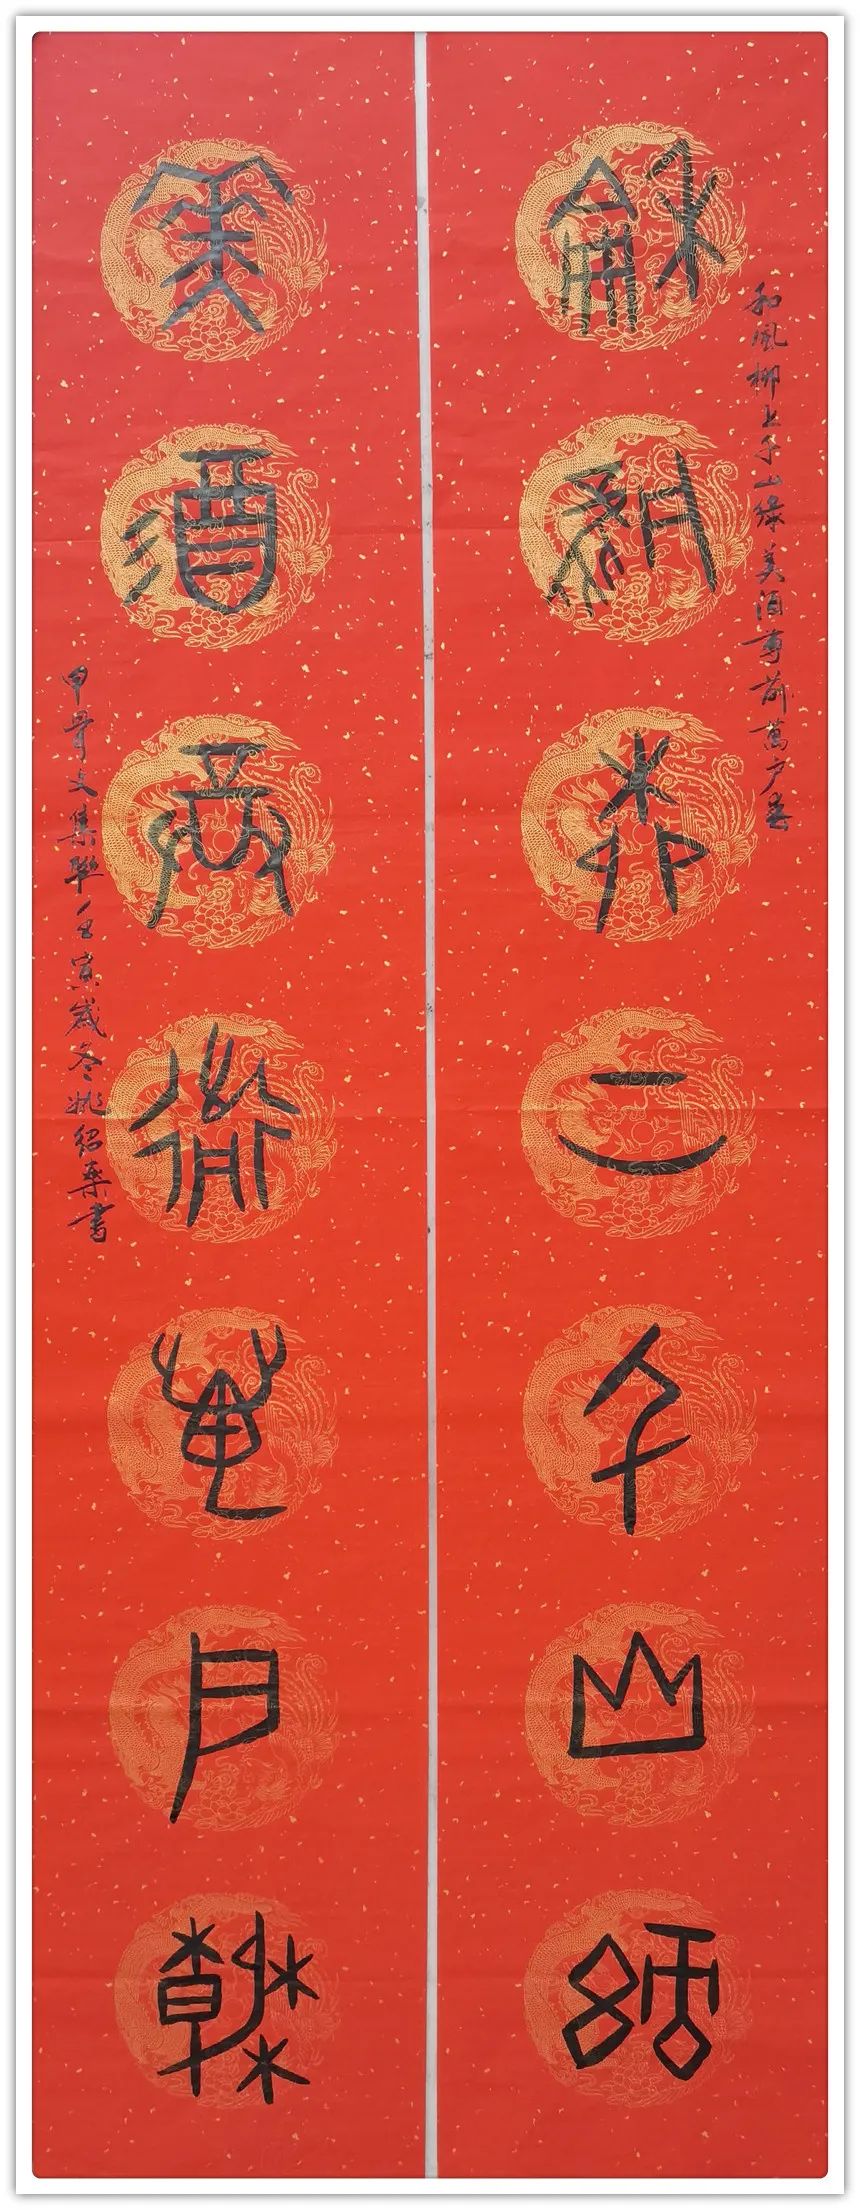 龢風柳上千山綠
和風柳上千山綠美酒尊前萬户春
美酒尊前萬户春
甲骨文集聯壬寅歲冬姚紹書